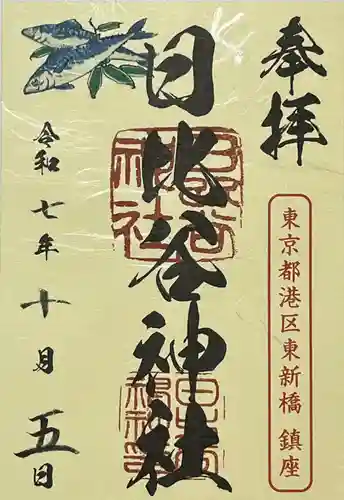 奉拝
東京都港区東新橋 鎮座
日比谷神社
令和七年十月五日